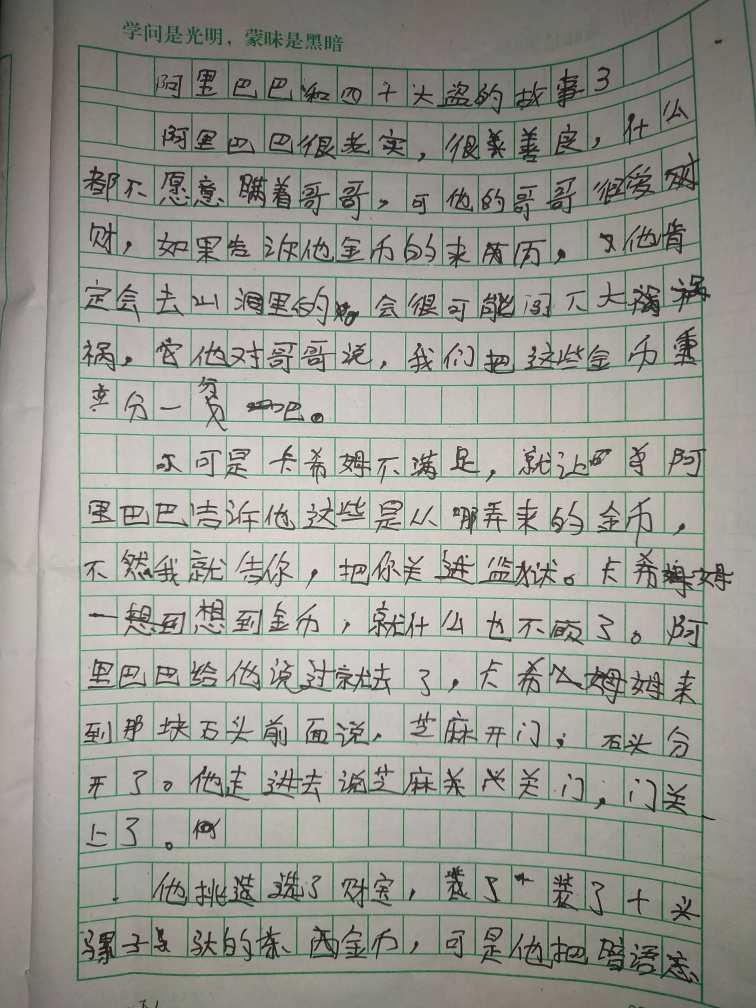 学问是光明，蒙昧是黑暗
阿里巴巴和四十大盗的故事3
阿里巴巴很老实，很善良，什么
都不愿意瞒着哥哥，可他的哥哥很爱财
财，如果告诉他金币的来历，他肯
定会去山洞里的，会很可能闯下大祸
祸，他对哥哥说，我们把这些金币重
分一分吧。
可是卡希姆不满足，就让阿
里巴巴告诉他这些是从哪弄来的金币，
不然我就告你，把你关进监狱。卡希姆
一想到想到金币，就什么也不顾了。阿
里巴巴给他说过就去了，卡希姆姆来
到那块石头前面说，芝麻开门，石头分
开了。他走进去说芝麻关关门，门关
上了。
他挑选选了财宝，装了装了十头
骡子驮的东西金币，可是他把暗语忘